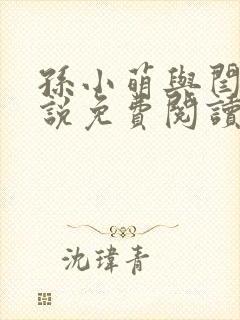 孫小萌與閆
說免費閱讀
沈瑋青